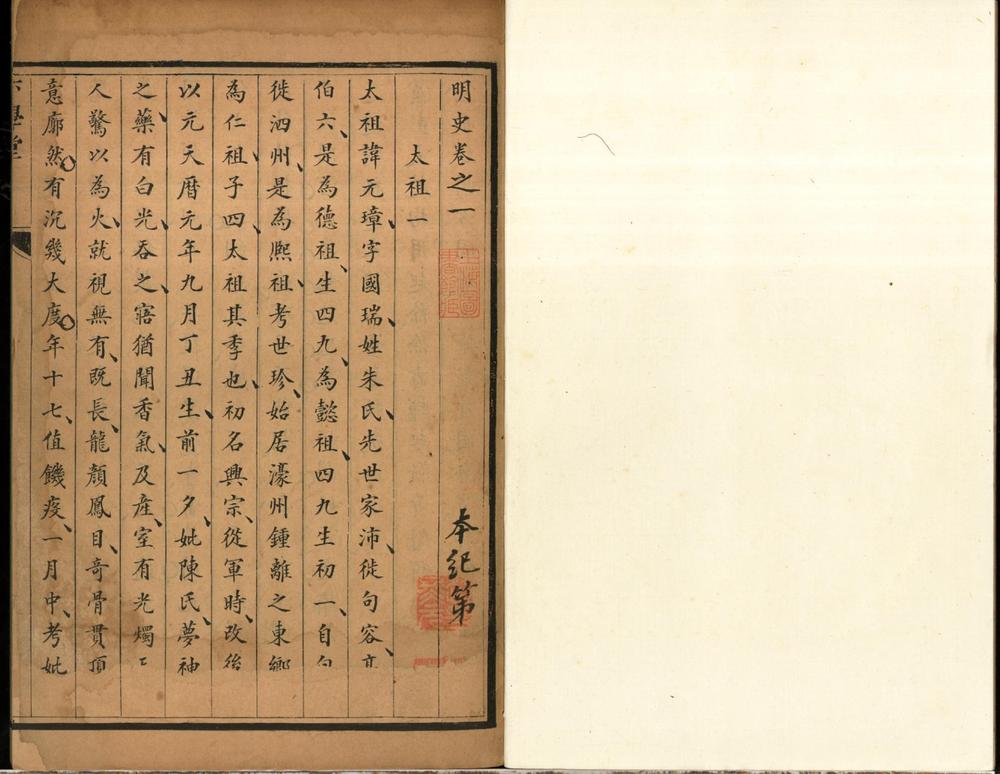 明史卷之一
本紀第
太祖一
太祖諱元璋字國瑞姓朱氏先世家沛徙句容
伯六是為德祖生四九為懿祖四九生初一自句
徙泗州是為熙祖考世珍始居濠州鍾離之東鄉
為仁祖子四太祖其季也初名興宗從軍時改
以元天曆元年九月丁丑生前一夕妣陳氏夢神
之藥有白光吞之寤猶聞香氣及產室有光燭
人驚以為火就視無有既長龍顏鳳目奇骨貫頂
意廓然有沉幾大度年十七值饑疫一月中考妣
學堂